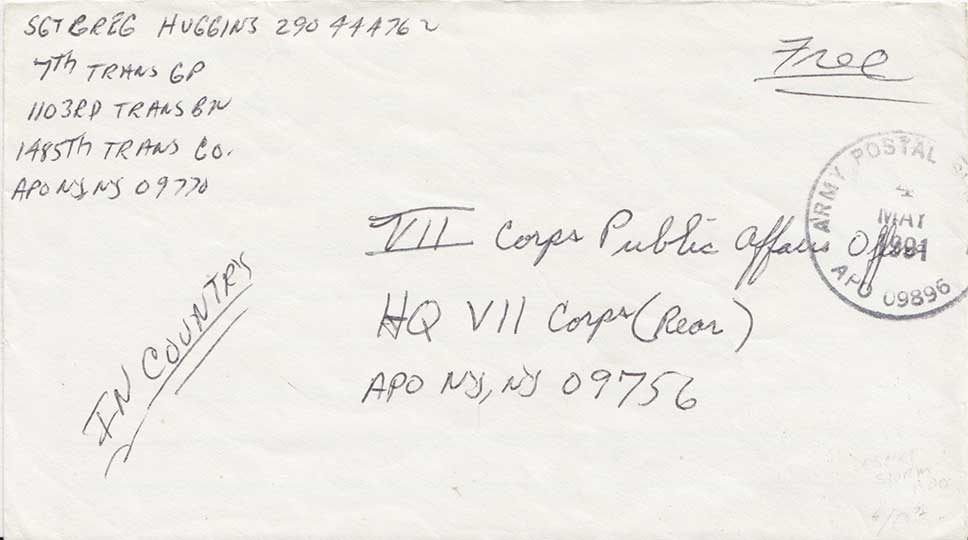 SGT GREG HUGGINS 290 44 4762
7TH TRANS GP
1103RD TRANS BN
1485TH TRANS CO.
APO NY, NY 09770
Free
ARMY POSTAL
4
MAY
1991
APO 09896
VII Corps Public Affairs Office
HQ VII Corps (Rear)
APO NY, NY 09756
IN COUNTRY
Desert
Storm